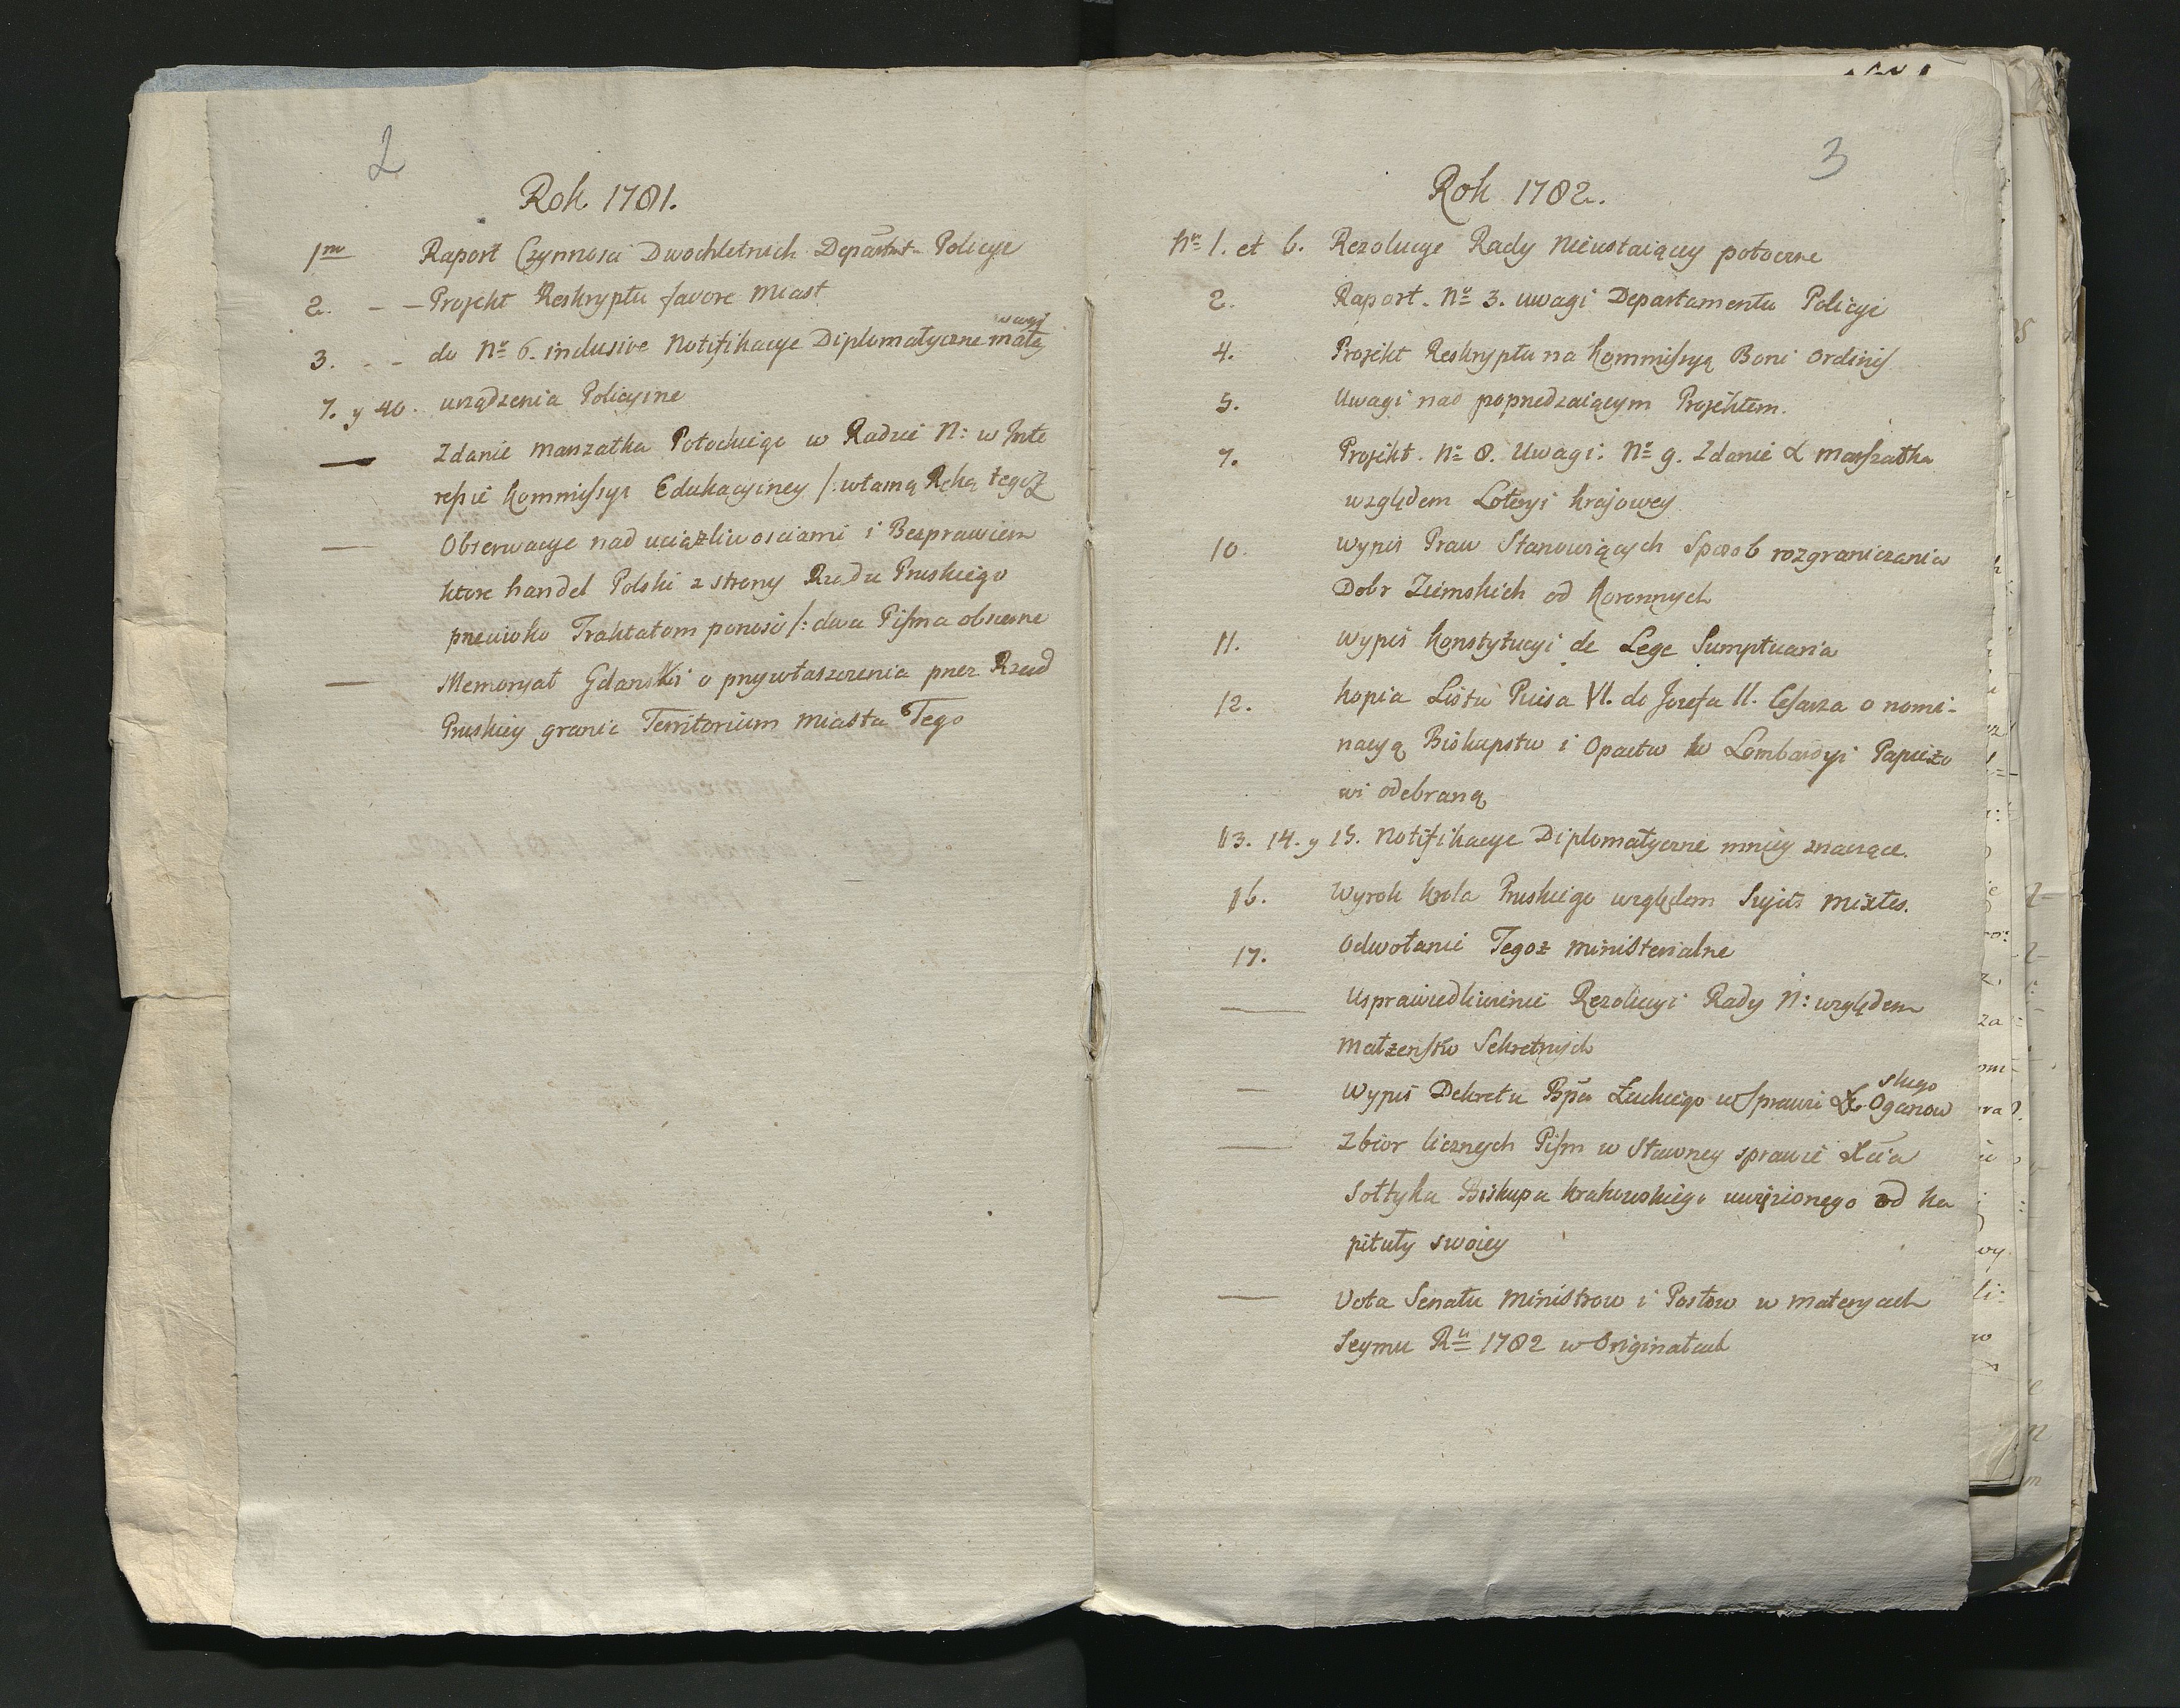 2
Rok 1781.
1mo Raport Czynnosci Dwochletnich Departmt. Policyi
2. - - Projekt Reskryptu favore Miast
uwagi
3. - - do No 6. inclusive Notifikacye Diplomatyczne małey
7. y 40. urządzenia Policyine
— Zdanie Marszałka Potockiego w Radzie N: w Inte
ressie Kommissyi Edukacyiney /: własną Ręką tegoż
— Obserwacye nad uciążliwosciami i Bezprawiem
ktore handel Polski z strony Rządu Pruskiego
przeciwko Traktatom ponosi /: dwa Pisma obszerne
— Memoryał Gdanski o przywłaszczenia przez Rząd
Pruskiey granic Territorium Miasta Tego
3
Rok 1782.
No 1. et 6. Rezolucye Rady Nieustaiącey potoczne
2. Raport. No 3. uwagi Departamentu Policyi
4. Projekt Reskryptu na Kommissyą Boni Ordinis
5. Uwagi nad poprzedzaiącym Projektem.
7. Projekt. No 8. Uwagi: No 9. Zdanie X Marszałka
względem Loteryi krajowey
10. Wypis Praw Stanowiących Sposob rozgraniczania
Dobr Ziemskich od Koronnych
11. Wypis Konstytucyi de Lege Sumptuaria
12. Kopia Listu Piusa VI. do Jozefa II. Cesarza o nomi-
nacyą Biskupstw i Opactw w Lombardyi Papieżo
wi odebraną
13. 14. y 15. Notifikacye Diplomatyczne mniey znaczące.
16. Wyrok Krola Pruskiego względem Sujets mixtes.
17. Odwołanie Tegoż Ministerialne
— Usprawiedliwienie Rezolucyi Rady N: względem
Małżenstw Sekretnych
slugo
— Wypis Dekretu Bpa Łuckiego w Sprawie Oganow
— Zbior licznych Pism w Sławney sprawie Xcia
Sołtyka Biskupa Krakowskiego uwięzionego od Ka
pituły swoiey
— Vota Senatu Ministrow i Posłow w materyach
Seymu Ru 1782 w Originałach